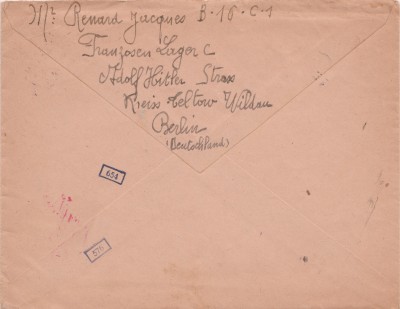 Mr Renard Jacques B-16-C-1
Franzosen Lager C
Adolf Hitler Strass
Kreiss Teltow Wildau
Berlin
(Deutschland)
654
576